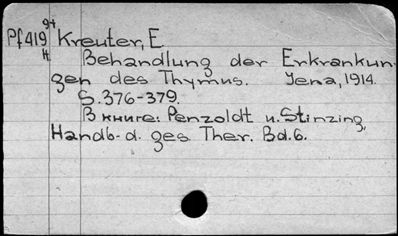 94
Pf419 Kreuter, E.
H.
Behandlung der Erkrankun-
gen des Thymus. Jena, 1914.
S.376-379.
В книге: Penzoldt u. Stinzing,
Handb. d. ges Ther. Bd.6.